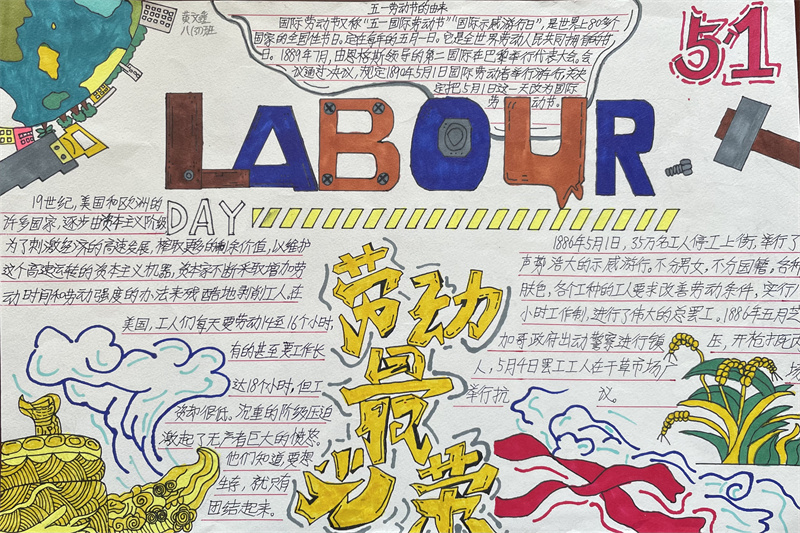 黄文鑫
八(3)班
五一劳动节的由来
国际劳动节又称“五一国际劳动节”“国际示威游行日”,是世界上80多个
国家的全国性节日。定在每年的五月一日。它是全世界劳动人民共同拥有的节
日。1889年7月,由恩格斯领导的第二国际在巴黎举行代表大会。会
议通过决议,规定1890年5月1日国际劳动者举行游行,决
定把5月1日这一天改为国际
劳动节。
51
LABOUR
DAY
19世纪,美国和欧洲的
许多国家,逐步由资本主义阶段
为了刺激经济的高速发展,榨取更多的剩余价值,以维护
这个高速运转的资本主义机器,资本家不断采取增加劳
动时间和劳动强度的办法来残酷地剥削工人。在
美国,工人们每天要劳动14至16个小时,
有的甚至要工作长
达18个小时,但工
资却很低。沉重的阶级压迫
激起了无产者巨大的愤怒。
他们知道要想
生存,就只有
团结起来。
劳动
最
光
荣
1886年5月1日,35万名工人停工上街,举行了
声势浩大的示威游行。不分男女,不分国籍,各种
肤色,各个工种的工人要求改善劳动条件,实行八
小时工作制,进行了伟大的总罢工。1886年五月芝
加哥政府出动警察进行镇压,开枪打死两
人,5月4日罢工工人在干草市场广场
举行抗议。